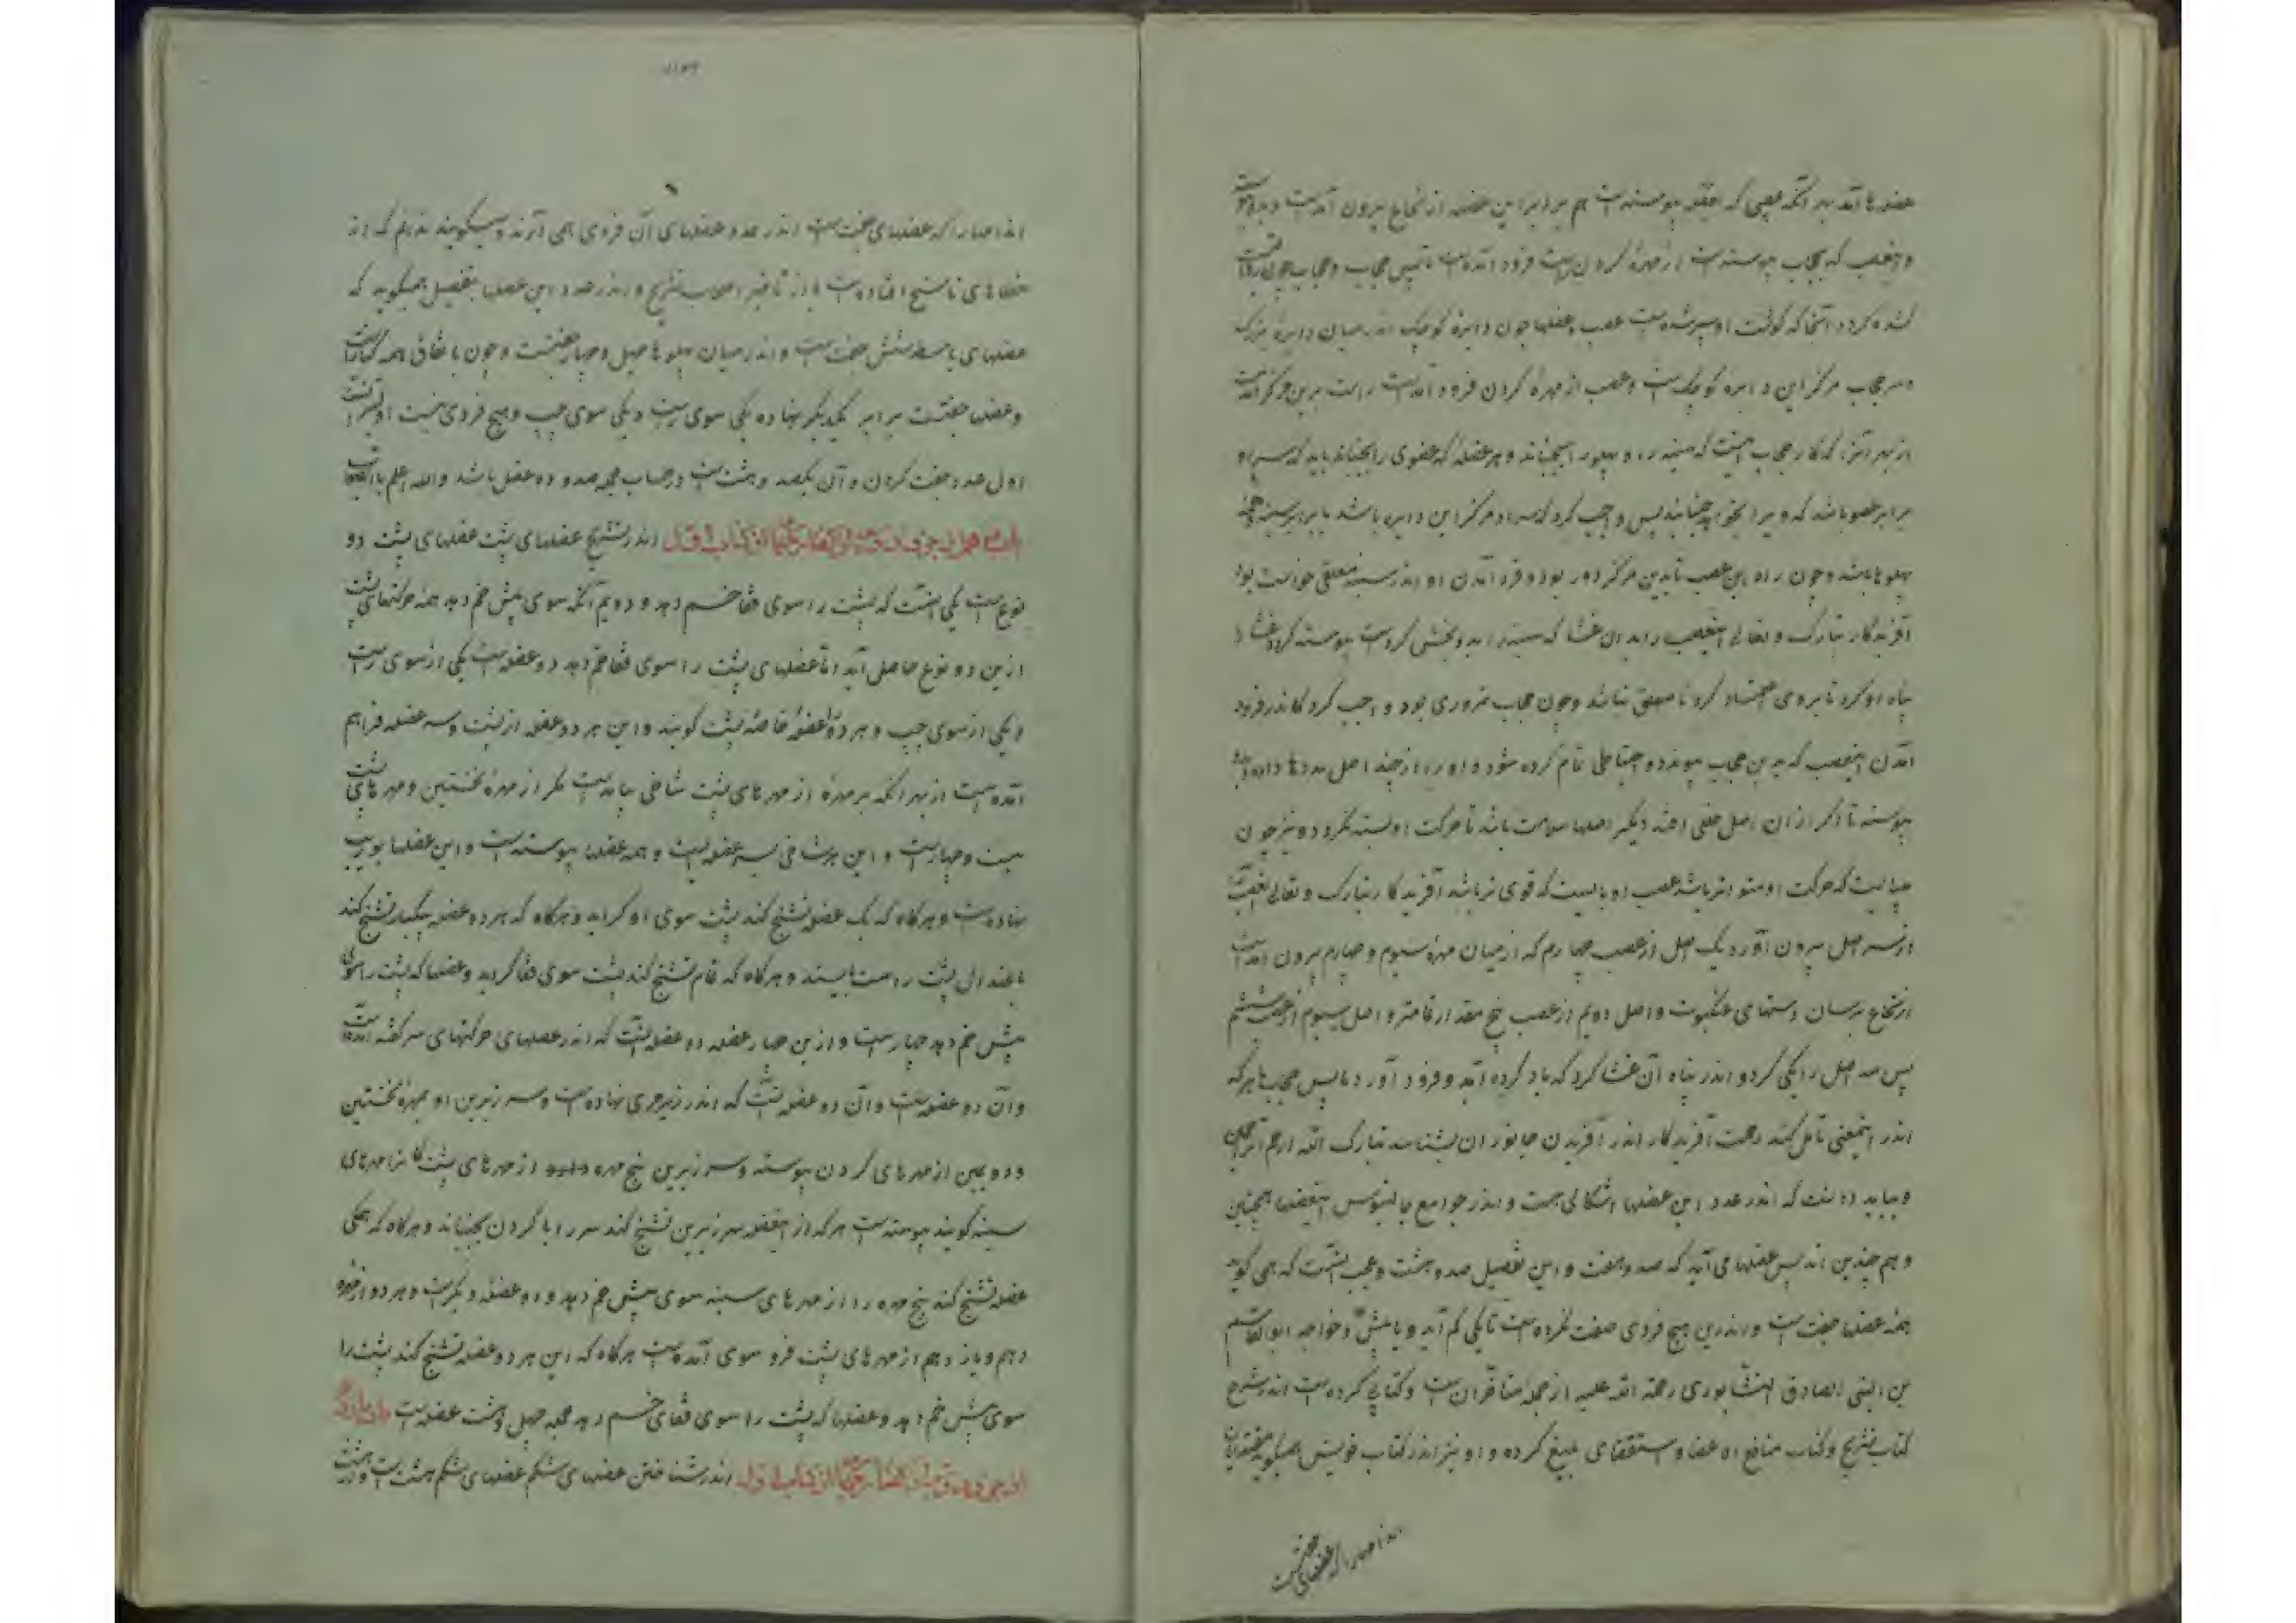 عضلها آمد بهر آنکه عصبی که بعضله پیوسته است هم برابر این عضله از نخاع بیرون آمدست
و این عصب که بحجاب پیوسته است از مهرهٔ گردن است فرود آمده است تا بپس حجاب و حجاب چون
کرد آنجا که گوشت او سپر شده است عصب و عضلها چون دایرهٔ کوچک اندر میان دایرهٔ بزرگ
و سر حجاب مرکز این دایرهٔ کوچک است و عصب از مهرهٔ گردن فرود آمدست راست برین مرکز آمدست
از بهر آنرا که کار حجاب اینست که سینه را و پهلو را بجنباند و هر عضله که عضوی را بجنباند باید که سر او
برابر عضو باشد که ویرا بخواهد جنبانید پس واجب کرد که سر او مرکز این دایره باشد تا برابر سینه و همه
پهلوها باشد و چون راه این عصب تا بدین مرکز دور بود و فرود آمدن او اندر سینه معلق خواست بود
آفریدگار تبارک و تعالی این عصب را بدان غشا که سینه را بدو بخش کردست پیوسته کرد و غشا را
پناه او کرد تا بروی اعتماد کرد تا معلق نباشد و چون حجاب ضروری بود واجب کرد که اندر فرود
آمدن این عصب که بدین حجاب پیوندد احتیاطی تمام کرده شود و او را از چند اصل مددها داده آید
پیوسته تا اگر از آن اصل خللی افتد دیگر اصلها سلامت باشد تا حرکت او بسته نگردد و نیز چون
چنانست که حرکت او متواتر باشد عصب او بایست که قوی تر باشد آفریدگار تبارک و تعالی این عصب
از سه اصل بیرون آورد یک اصل از عصب چهارم که از میان مهرهٔ سیوم و چهارم بیرون آمدست
از نخاع برسان رستهای عنکبوت و اصل دویم از عصب پنجم مقداری فاضلتر و اصل سیوم از عصب ششم
پس سه اصل را یکی کرد و اندر پناه آن غشا کرد که یاد کرده آمد و فرود آورد تا بپس حجاب تا هر که
اندر این معنی تأمل کند رحمت آفریدگار اندر آفریدن جانوران بشناسد تبارک الله ارحم الراحمین
و بباید دانست که اندر عدد این عضلها اشکالی هست و اندر جوامع جالینوس این عضلها همچنین
و هم چندین اند پس عضلها می آید که صد و هفت و این تفصیل صد و هشت و عجب اینست که همی گوید
همه عضلها جفت است و اندرین هیچ فردی صفت نکرده است تا یکی کم آید و یا بیش و خواجه ابوالقاسم
بن ابی الصادق النیشابوری رحمة الله علیه از جمله متأخران است و کتابی کرده است اندر شرح
کتاب تشریح و کتاب منافع الاعضا و استقصای بلیغ کرده و او نیز اندر کتاب خویش همیگوید
اندامها را که عضلهای جفت است
اندامها را که عضلهای جفت است اندر عدد عضلهای آن فردی همی آرند و میگویند ندانم که از
خطاهای ناسخ افتاده است یا از تأخیر اصحاب تشریح و اندر عدد این عضلها بتفصیل همیگوید که
عضلهای باسطه شش جفت است و اندر میان پهلوها چهل و چهار جفتست و چون باتفاق همه
و عضلها جفتست برابر یکدیگر نهاده یکی سوی راست و یکی سوی چپ و هیچ فردی نیست
اول عدد جفت کردن و آن یکصد و هشت است در حساب جمله صد و ده عضله باشد والله اعلم بالصواب
اندر تشریح عضلهای پشت عضلهای پشت دو
نوع است یکی آنست که پشت را سوی قفا خم دهد و دویم آنکه سوی پیش خم دهد همه حرکتهای پشت
ازین دو نوع حاصل آید اما عضلهای پشت را سوی قفا خم دهد دو عضله است یکی از سوی راست
و یکی از سوی چپ و هر دو را عضلهٔ خاصهٔ پشت گویند و این هر دو عضله از بیست و سه عضله فراهم
آمده است از بهر آنکه بر مهرهٔ از مهرهای پشت شاخی بیامدست مگر از مهرهٔ نخستین و مهرهای پشت
بیست و چهار است و این هر شاخی بسر عضله ایست و همه عضلها پیوسته است و این عضلها بوریب
نهاده است و هرگاه که یک عضله تشنج کند پشت سوی او گراید و هرگاه که هر دو عضله یکبار تشنج کند
باعتدال پشت راست بایستد و هرگاه که تمام تشنج کند پشت سوی قفا گراید و عضلها که پشت را سوی
پیش خم دهد چهار است و ازین چهار عضله دو عضله آنست که اندر عضلهای حرکتهای سر گفته آمدست
و آن دو عضله است و آن دو عضله آنست که اندر زیر مری نهاده است و سر زبرین او بمهرهٔ نخستین
و دویمین از مهرهای گردن پیوسته و سر زیرین پنج مهره از مهرهای پشت کانرا مهرهای
سینه گویند پیوسته است هرگه از این عضله سر زبرین تشنج کند سر را با گردن بجنباند و هرگاه که همگی
عضله تشنج کند پنج مهره را از مهرهای سینه سوی پیش خم دهد و دو عضلهٔ دیگر است و هر دو از مهره
دهم و یازدهم از مهرهای پشت فرو سوی آمده است هرگاه که این هر دو عضله تشنج کند پشت را
سوی پیش خم دهد و عضلها که پشت را سوی قفای خم دهد جمله چهل و هشت عضله است
اندر شناختن عضلهای شکم عضلهای شکم هشت است